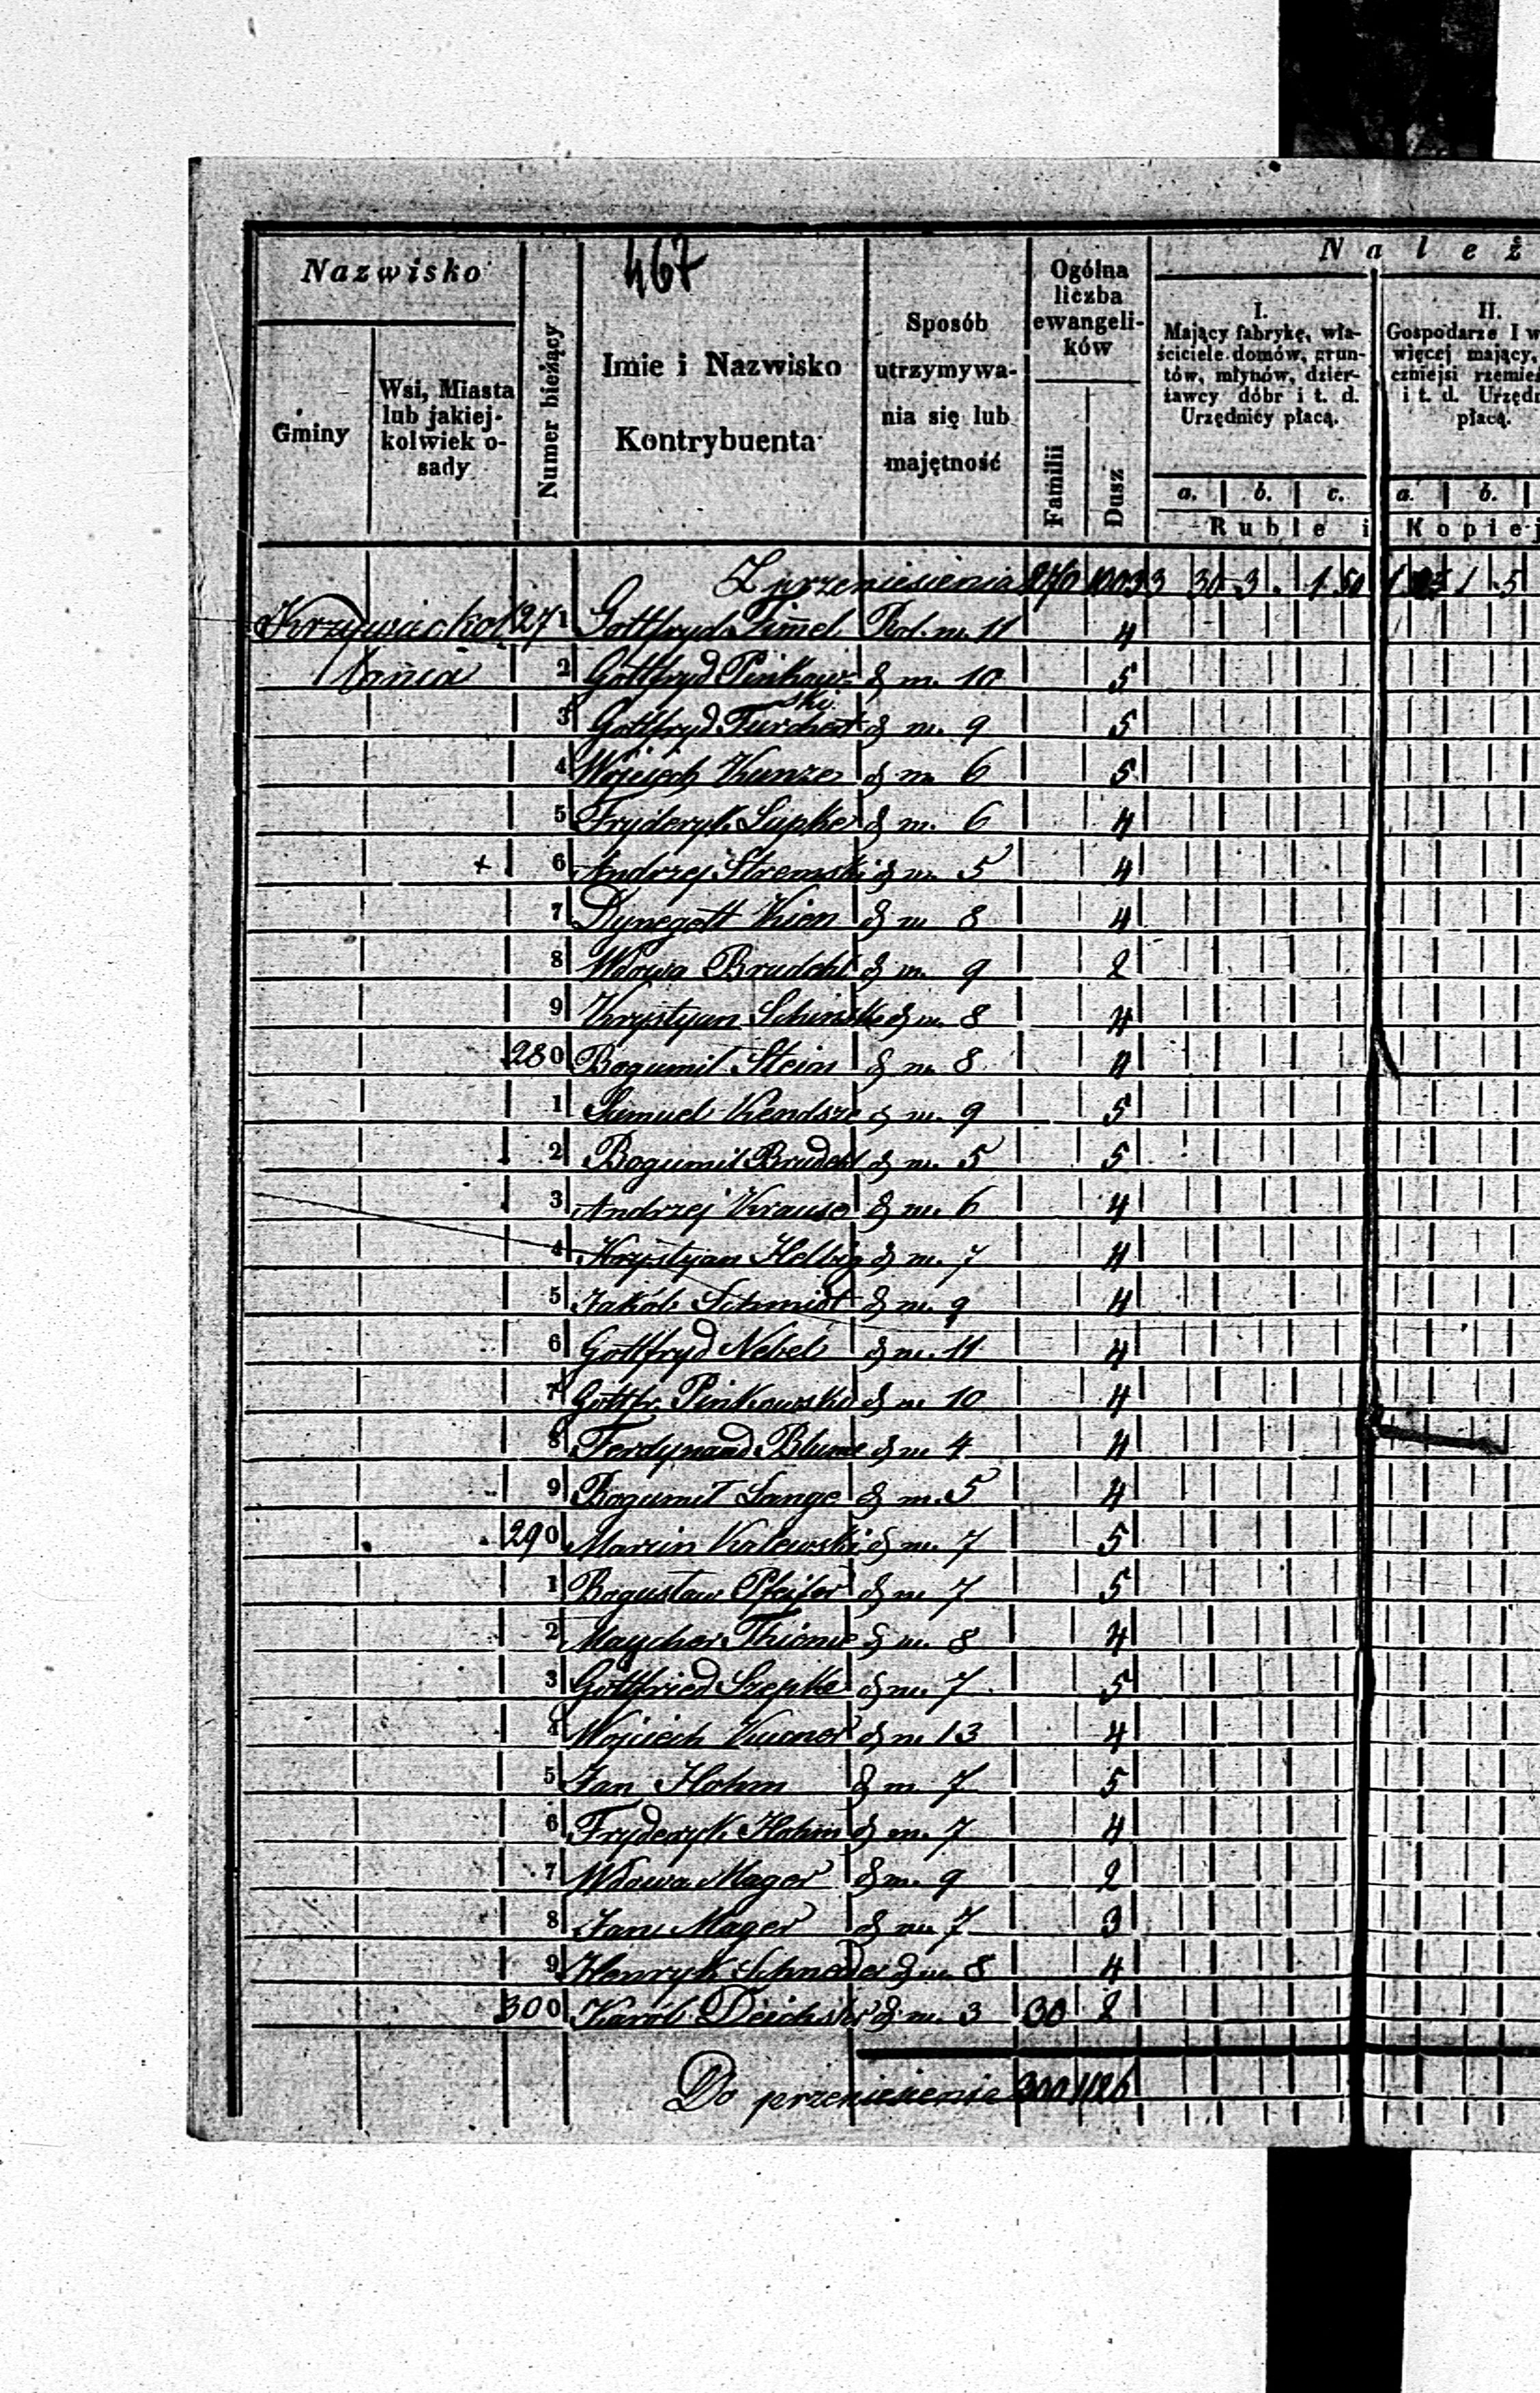 467
Nazwisko
Gminy
Wsi, Miasta
lub jakiej-
kolwiek o-
sady
Numer bieżący
Imie i Nazwisko
Kontrybuenta
Sposób
utrzymywa-
nia się lub
majętność
Ogólna
liczba
ewangeli-
ków
Familii
Dusz
Należ
I.
Mający fabrykę, wła-
ściciele domów, grun-
tów, młynów, dzier-
żawcy dóbr i t. d.
Urzędnicy płacą.
a. b. c.
II.
Gospodarze I w
więcej mający,
czniejsi rzemieś
i t. d. Urzędn
płacą.
a. b.
Ruble i Kopiej
Z przeniesienia 270 1003 3 30 3 1 50 1 5
271 Gottfryd Rol. m. 11 4
2 Gottfryd Pinkow- d m. 10 5
ski
3 Gottfryd d m. 9 5
4 Wojciech Kunze d m 6 5
5 Fryderyk Lupke d m. 6 4
+ 6 Andrzej Stremski d m 5 4
7 Dynegott Kien d m 8 4
8 Wdowa d m. 9 2
9 Krystyan Schinske d m. 8 4
280 Bogumil Stein d m 8 4
1 Samuel Kendsze d m. 9 5
2 Bogumil d m. 5 5
3 Andrzej Krause d m. 6 4
4 Krystyan Helbig d m. 7 4
5 Jakób Schmidt d m. 9 4
6 Gottfryd Nebel d m. 11 4
7 Gottfr. Pinkowski d m 10 4
8 Ferdynand Blume d m 4 4
9 Bogumil Lange d m. 5 4
290 Marcin Kalewski d m. 7 5
1 Bogusław Pfeifer d m 7 5
2 Maycher Thiome d m. 8 4
3 Gottfried Szepke d m. 7 5
4 Wojciech d m 13 4
5 Jan Hohm d m. 7 5
6 Fryderyk Hohm d m. 7 4
7 Wdowa Mager d m. 9 2
8 Jan Mager d m 7 3
9 Henryk Schneder d m. 8 4
300 Karól d m. 3 30 2
Do przeniesienia 300 1126